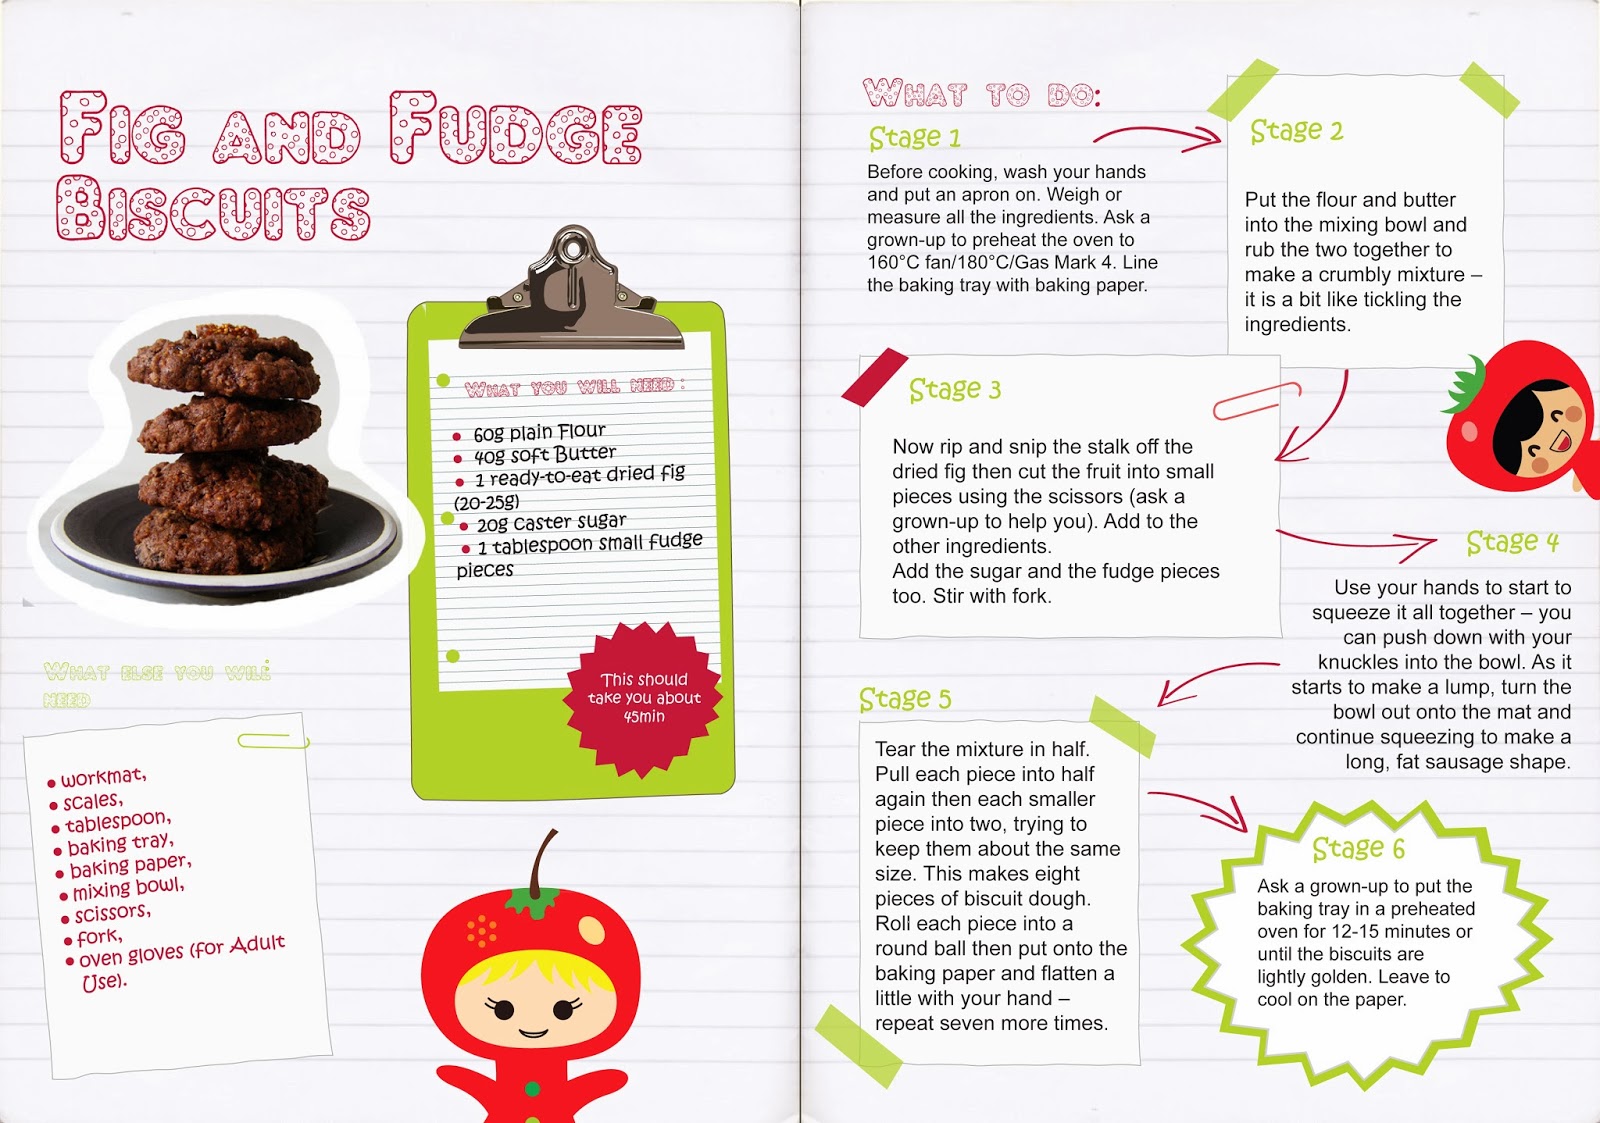 Fig and Fudge
Biscuits
What you will need :
• 60g plain Flour
• 40g soft Butter
• 1 ready-to-eat dried fig
(20-25g)
• 20g caster sugar
• 1 tablespoon small fudge
pieces
This should
take you about
45min
What else you will
need
:
• workmat,
• scales,
• tablespoon,
• baking tray,
• baking paper,
• mixing bowl,
• scissors,
• fork,
• oven gloves (for Adult
Use).
What to do:
Stage 1
Before cooking, wash your hands
and put an apron on. Weigh or
measure all the ingredients. Ask a
grown-up to preheat the oven to
160°C fan/180°C/Gas Mark 4. Line
the baking tray with baking paper.
Stage 2
Put the flour and butter
into the mixing bowl and
rub the two together to
make a crumbly mixture –
it is a bit like tickling the
ingredients.
Stage 3
Now rip and snip the stalk off the
dried fig then cut the fruit into small
pieces using the scissors (ask a
grown-up to help you). Add to the
other ingredients.
Add the sugar and the fudge pieces
too. Stir with fork.
Stage 4
Use your hands to start to
squeeze it all together – you
can push down with your
knuckles into the bowl. As it
starts to make a lump, turn the
bowl out onto the mat and
continue squeezing to make a
long, fat sausage shape.
Stage 5
Tear the mixture in half.
Pull each piece into half
again then each smaller
piece into two, trying to
keep them about the same
size. This makes eight
pieces of biscuit dough.
Roll each piece into a
round ball then put onto the
baking paper and flatten a
little with your hand –
repeat seven more times.
Stage 6
Ask a grown-up to put the
baking tray in a preheated
oven for 12-15 minutes or
until the biscuits are
lightly golden. Leave to
cool on the paper.